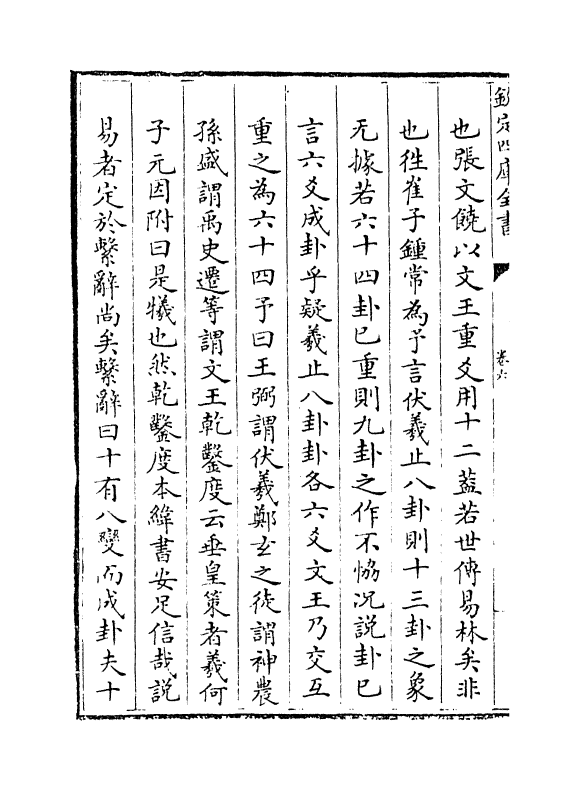 欽定四庫全書
卷六
也張文饒以文王重爻用十二蓋若世傳易林矣非
也徃崔子鍾常為予言伏羲止八卦則十三卦之象
无據若六十四卦已重則九卦之作不恊况說卦已
言六爻成卦乎疑羲止八卦卦各六爻文王乃交互
重之為六十四予曰王弼謂伏羲鄭玄之徒謂神農
孫盛謂禹史遷等謂文王乾鑿度云垂皇策者羲何
子元因附曰是犧也然乾鑿度本緯書安足信哉說
易者定於繫辭尚矣繫辭曰十有八變而成卦夫十